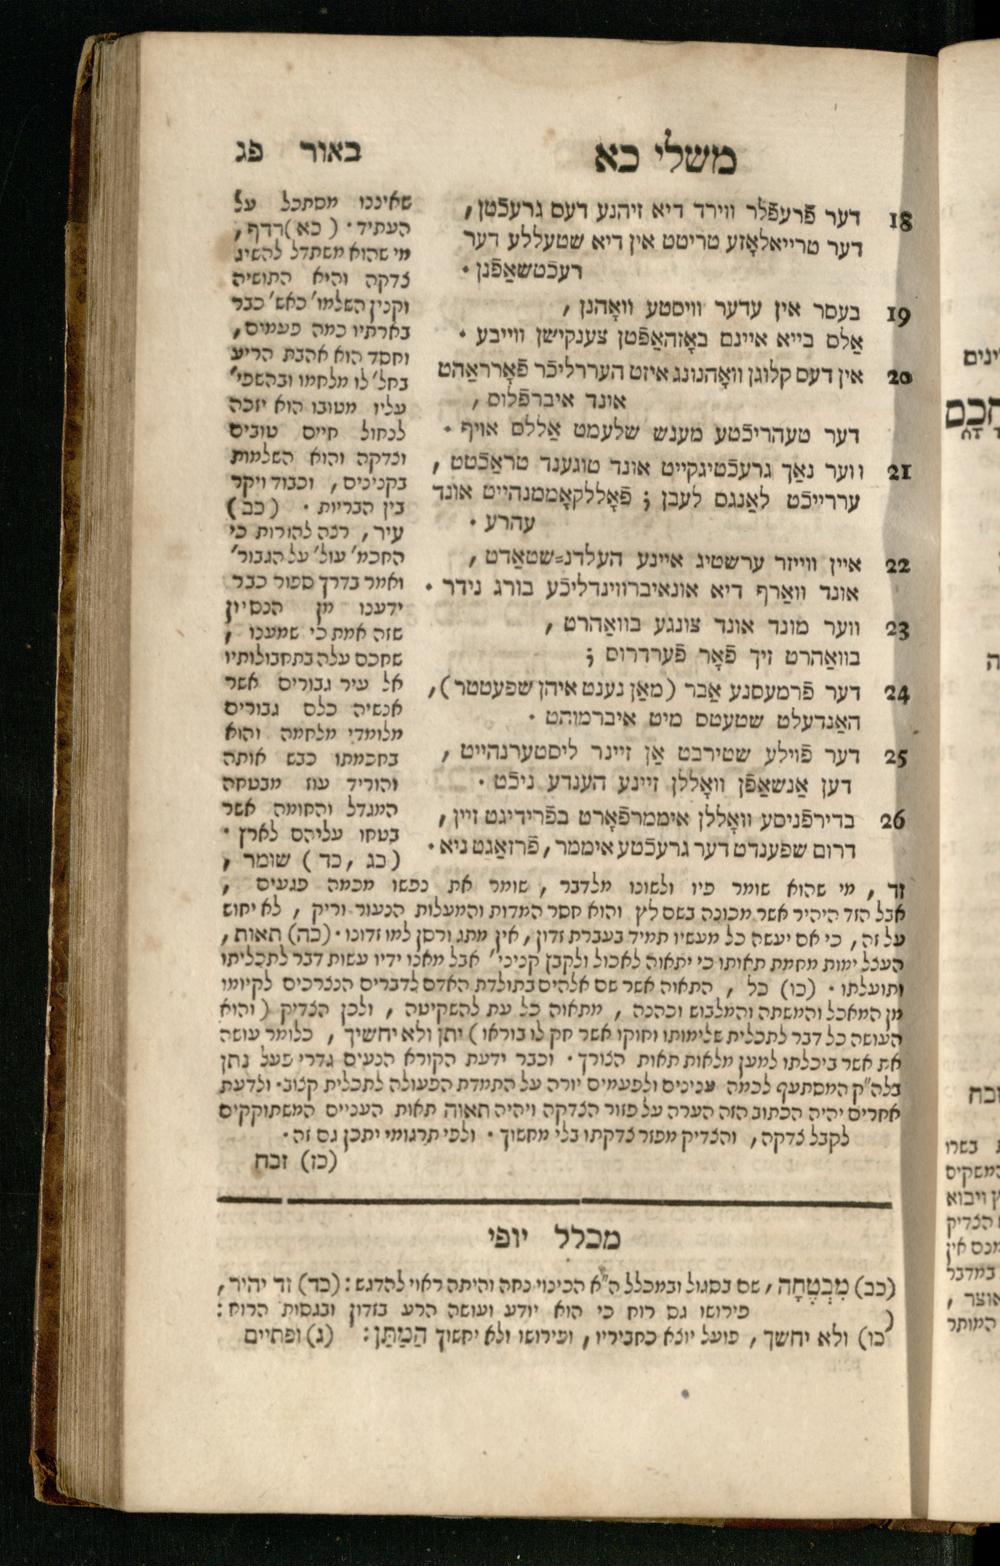 משלי כא
באור פג
18 דער פֿרעפֿלר ווירד דיא זיהנע דעס גרעכֿטן,
דער טרייאלאָזע טריטט אין דיא שטעללע דער
רעכֿטשאַפֿנן •
19 בעסר אין עדער וויסטע וואָהנן,
אַלס בייא איינם באָזהאַפֿטן צענקישן ווייבע •
20 אין דעס קלוגן וואָהנונג איזט העררליכֿר פֿאָרראַהט
אונד איברפֿלוס,
דער טעהריכֿטע מענש שלעמט אַללס אויף •
21 ווער נאַך גרעכֿטיגקייט אונד טוגענד טראַכֿטט,
עררייכֿט לאַנגס לעבן ; פֿאָללקאָממנהייט אונד
עהרע •
22 איין ווייזר ערשטיג איינע העלדנ=שטאַדט,
אונד וואַרף דיא אונאיברווינדליכֿע בורג נידר •
23 ווער מונד אונד צונגע בוואַהרט,
בוואַהרט זיך פֿאָר פֿערדרוס ;
24 דער פֿרמעסנע אַבר (מאַן נענט איהן שפּעטטר),
האַנדעלט שטעטס מיט איברמוהט •
25 דער פֿוילע שטירבט אָן זיינר ליסטערנהייט,
דען אַנשאַפֿן וואָללן זיינע הענדע ניכֿט •
26 בדירפֿניסע וואָללן איממרפֿאָרט בפֿרידיגט זיין,
דרום שפּענדט דער גרעכֿטע איממר, פֿרזאַגט ניא •
שאיננו מסתכל על
העתיד • (כא) רדף,
מי שהוא משתדל להשיג
צדקה והיא התושיה
וקנין השלמו' כאש' כבר
בארתיו כמה פעמים,
וחסד הוא אהבת הריע
בחל' לו מלחמו ובהשפי'
עליו מטובו הוא יזכה
לנחול חיים טובים
וצדקה והוא השלמות
בקנינים, וכבוד ויקר
בין הבריות • (כב)
עיר, רצה להורות כי
החכמ' עול' על הגבור'
ואמר בדרך ספור כבר
ידענו מן הנסיון
שזה אמת כי שמענו,
שחכם עלה בתחבולותיו
אל עיר גבורים אשר
אנשיה כלם גבורים
מלומדי מלחמה והוא
בחכמתו כבש אותה
והוריד עוז מבטחה
המגדל והחומה אשר
בטחו עליהם לארץ •
(כג, כד) שומר,
זד, מי שהוא שומר פיו ולשונו מלדבר, שומר את נפשו מכמה פגעים,
אבל הזד היהיר אשר מכונה בשם לץ והוא חסר המדות והמעלות הנעור וריק, לא יחוש
על זה, כי אם יעשה כל מעשיו תמיד בעברת זדון, אין מתג ורסן למו זדונו • (כה) תאות,
העצל ימות מחמת תאותו כי יתאוה לאכול ולקבץ קניני' אבל מאנו ידיו עשות דבר לתכליתו
ותועלתו • (כו) כל, התאוה אשר שם אלהים בתולדת האדם לדברים הצרכים לקיומו
מן המאכל והמשתה והמלבוש וכהנה, מתאוה כל עת להשקיטה, ולכן הצדיק (והוא
העושה כל דבר לתכלית שלימותו וחוקו אשר חק לו בוראו) יתן ולא יחשיך, כלומר עושה
את אשר ביכלתו למען מלאות תאות הצורך • וכבר ידעת הקורא הנעים גדרי פעל נתן
בלה"ק המסתעף לכמה ענינים ולפעמים יורה על התמדת הפעולה לתכלית קצוב • ולדעת
אחרים יהיה הכתוב הזה הערה על פזור הצדקה ויהיה תאוה תאות העניים המשתוקקים
לקבל צדקה, והצדיק מפזר צדקתו בלי מחשוך • ולפי תרגומי יתכן גם זה •
(כז) זבח
מכלל יופי
(כב) מִבְטֶחָה, שם בסגול ובמכלל ה"א הכינוי נחה והיתה ראוי להדגש : (כד) זד יהיר,
פירושו גס רוח כי הוא יודע ועושה הרע בזדון ובגסות הרוח :
(כו) ולא יחשך, פועל יוצא כחביריו, ופירושו ולא יחשוך הַמַתַּן : (ג) ופתיים